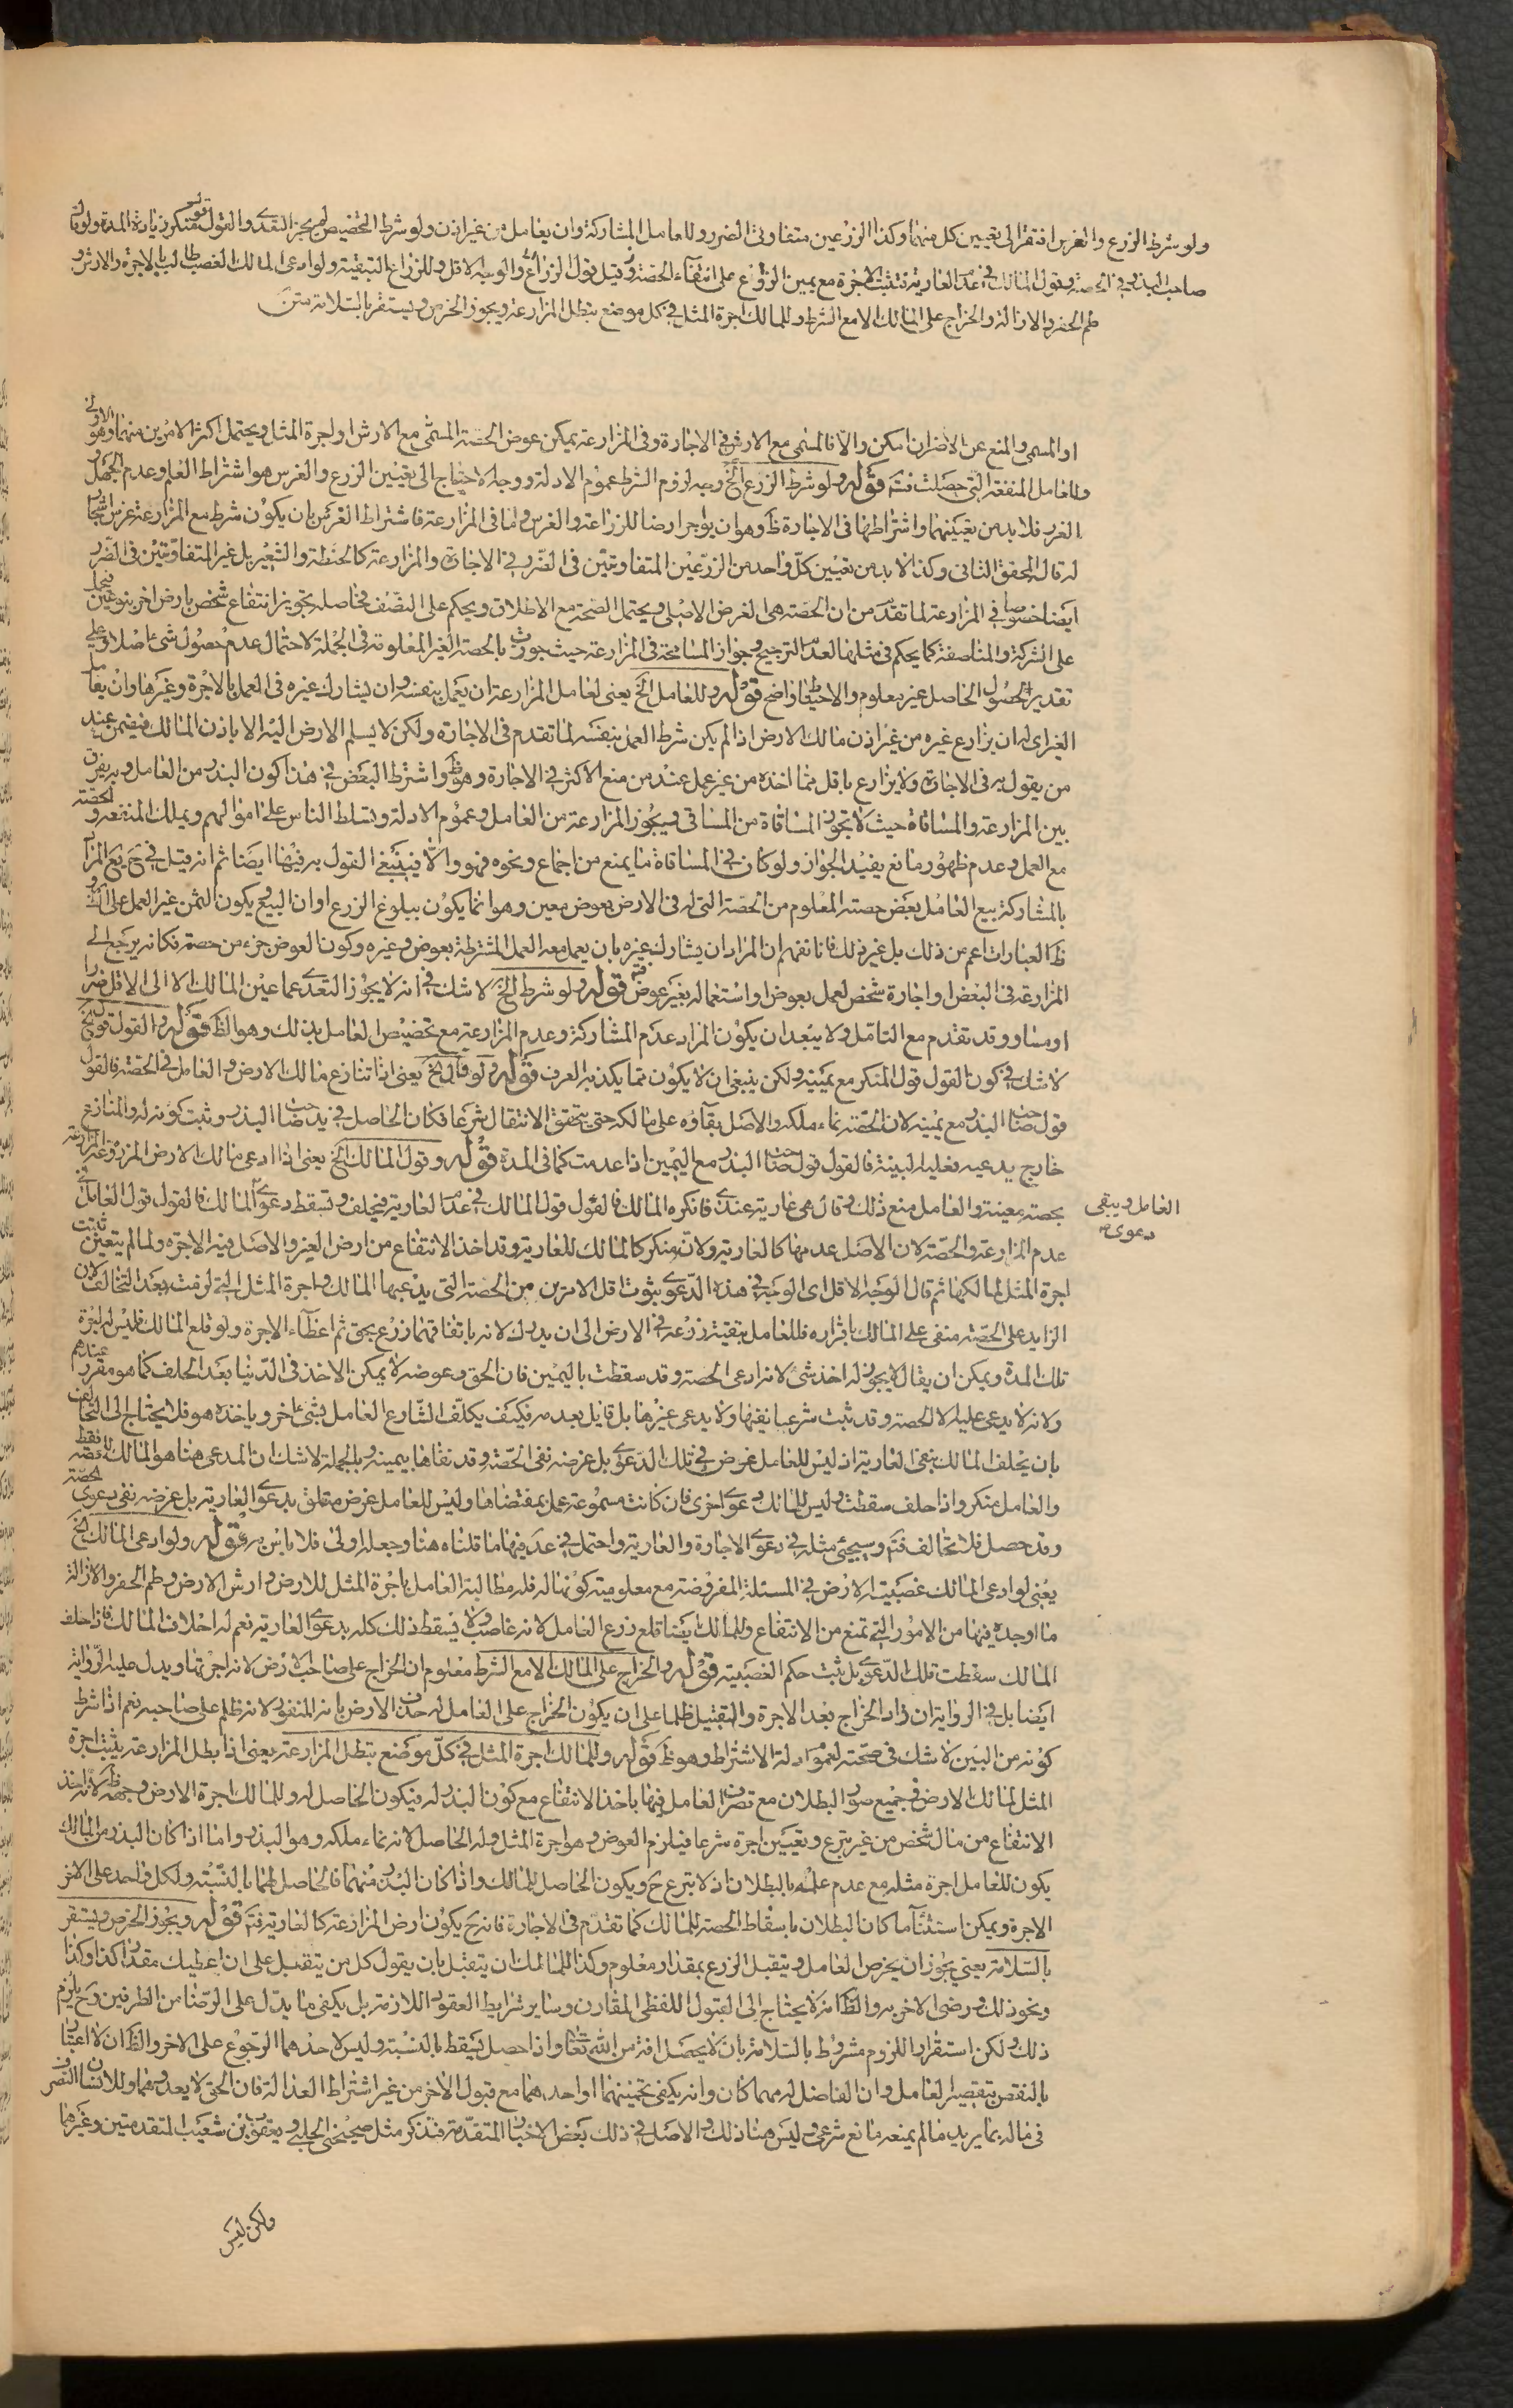 ولو شرط الزرع والغرس افتقر الى تعيين كل منهما وكذا الزرعين متفاوتي الضرر وللعامل المشاركة وان يعامل من غير اذن ولو شرط التخصيص لم يجز التعدي والقول قول منكر زيادة المدة وقول
صاحب البذر في الحصة وقول المالك في عدم العارية فتثبت الاجرة مع يمين الزارع على انتفاء الحصة وقيل قول الزارع والوجه الاقل وللزارع التبقية ولو ادعى المالك الغصب طالب بالاجرة والارش و
طم الحفر والازالة والخراج على المالك الا مع الشرط وللمالك اجرة المثل في كل موضع تبطل المزارعة ويجوز الخرص ويستقر بالسلامة متن
او المسمى والمنع عن الاضران امكن والا فالمسمى مع الارش في الاجارة وفي المزارعة يمكن عوض الحصة المسمى مع الارش او اجرة المثل ويحتمل اكثر الامرين منهما وهو الاولى
وللعامل المنفعة التي حصلت فتم قوله ولو شرط الزرع الخ وجه لزوم الشرط عموم الادلة ووجه الاحتياج الى تعيين الزرع والغرس هو اشتراط العلم وعدم الجهل و
الغرر فلا بد من تعيينهما واشتراطهما في الاجارة ظ وهو ان يؤجر ارضا للزراعة والغرس واما في المزارعة فاشتراط الغرس بان يكون شرط مع المزارعة غرس اشجار
له قال المحقق الثاني وكذا لا بد من تعيين كل واحد من الزرعين المتفاوتين في الضرر في الاجارة والمزارعة كالحنطة والشعير بل غير المتفاوتين في الضرر
ايضا خصوصا في المزارعة لما تقدم من ان الحصة هي الغرض الاصلي ويحتمل الصحة مع الاطلاق ويحكم على النصف فحاصله تجويز انتفاع شخص بارض اخر بنوعين فيحمل
على الشركة والمناصفة كما يحكم في مثلها لعدم الترجيح وجواز المسامحة في المزارعة حيث جوزت بالحصة الغير المعلومة في الجملة لاحتمال عدم حصول شئ اصلا وعلى
تقدير الحصول الحاصل غير معلوم والاحتياط واضح قوله وللعامل الخ يعني لعامل المزارعة ان يعمل بنفسه وان يشارك غيره في العمل بالاجرة وغيرها وان يعامل
الغير اي له ان يزارع غيره من غير اذن مالك الارض اذا لم يكن شرط العمل بنفسه لما تقدم في الاجارة ولكن لا يسلم الارض اليه الا باذن المالك فيضمن عند
من يقول به في الاجارة ولا يزارع باقل مما اخذه من غير عمل عند من منع الاكثر في الاجارة وهو ظ واشترط البعض في هذا كون البذر من العامل وبه يفرق
بين المزارعة والمساقاة حيث لا تجوز المساقاة من المساقي ويجوز المزارعة من العامل وعموم الادلة وتسلط الناس على اموالهم ويملك المنفعة والحصة
مع العمل وعدم ظهور مانع يفيد الجواز ولو كان في المساقاة ما يمنع من اجماع ونحوه فهو والا فينبغي القول به فيها ايضا ثم انه قيل في ح بيع المراد
بالمشاركة بيع العامل بعض حصته المعلوم من الحصة التي له في الارض بعوض معين وهو انما يكون ببلوغ الزرع اوان البيع ويكون الثمن غير العمل على
ظ العبارات اعم من ذلك بل غير ذلك فانا نفهم ان المراد ان يشارك غيره بان يعمل معه العمل المشترطة بعوض وغيره وكون العوض جزء من حصته فكانه يرجع الى
المزارعة في البعض او اجارة شخص لعمل بعوض او استعماله بغير عوض فتم قوله ولو شرط الخ لا شك في انه لا يجوز التعدي عما عين المالك الا الى الاقل ضررا
او مساو وقد تقدم مع التامل ولا يبعد ان يكون المراد عدم المشاركة وعدم المزارعة مع تخصيص العامل بذلك وهو الظ قوله والقول قول الخ
لا شك في كون القول قول المنكر مع يمينه ولكن ينبغي ان لا يكون مما يكذبه العرف قوله ولو قال الخ يعني اذا تنازع مالك الارض والعامل في الحصة فالقول
قول صاحب البذر مع يمينه لان الحصة نماء ملكه والاصل بقاؤه على مالكه حتى يتحقق الانتقال شرعا فكان الحاصل في يد صاحب البذر وثبت كونه له والمنازع
خارج يدعيه فعليه البينة فالقول قول صاحب البذر مع اليمين اذا عدمت كما في المدة قوله وقول المالك الخ يعني اذا ادعى مالك الارض المزروعة المزارعة
بحصة معينة والعامل منع ذلك وقال هي عارية عندي فانكره المالك فالقول قول المالك في عدم العارية فيحلف وتسقط دعوى المالك فالقول قول العامل في
العامل ويبقى
دعوى
عدم المزارعة والحصة لان الاصل عدمها كالعارية ولانه منكر كالمالك للعارية وقد اخذ الانتفاع من ارض الغير والاصل فيه الاجرة ولما لم يتعين تثبت
اجرة المثل لمالكها ثم قال الوجه الاقل اي الوجه في هذه الدعوى ثبوت اقل الامرين من الحصة التي يدعيها المالك واجرة المثل التي لزمت بعد التحالف لان
الزايد على الحصة منفى على المالك باقراره فللعامل تبقية زرعه في الارض الى ان يدرك لانه باتفاقهما زرع بحق ثم اعطاء الاجرة ولو قلع المالك فليس له اجرة
تلك المدة ويمكن ان يقال لا يجوز له اخذ شئ لانه ادعى الحصة وقد سقطت باليمين فان الحق وعوضه لا يمكن الاخذ في الدنيا بعد الحلف كما هو مقرر عندهم
ولانه لا يدعى عليه الا الحصة وقد ثبت شرعا نفيها ولا يدعى غيرها بل قايل بعدمه فكيف يكلف الشارع العامل بشئ اخر وياخذه هو فلا يحتاج الى التحالف
بان يحلف المالك بنفي العارية اذ ليس للعامل غرض في تلك الدعوى بل غرضه نفي الحصة وقد نفاها بيمينه وبالجملة لا شك ان المدعي هنا هو المالك فقط
والعامل منكر واذا حلف سقطت وليس للمالك دعوى اخرى فان كانت مسموعة عمل بمقتضاها وليس للعامل غرض متعلق بدعوى العارية بل غرضه نفي دعوى الحصة
وقد حصل فلا تحالف فتم وسيجئ مثله في دعوى الاجارة والعارية واحتمل في عد فيها ما قلناه هنا وجعله اولى فلا باس به قوله ولو ادعى المالك الخ
يعني لو ادعى المالك غصبية الارض في المسئلة المفروضة مع معلومية كونها له فله مطالبة العامل باجرة المثل للارض وارش الارض وطم الحفر والازالة
ما اوجده فيها من الامور التي تمنع من الانتفاع وللمالك ايضا قلع زرع العامل لانه غاصب ولا يسقط ذلك كله بدعوى العارية نعم له احلاف المالك فاذا حلف
المالك سقطت تلك الدعوى بل ثبت حكم الغصبية قوله والخراج على المالك الا مع الشرط معلوم ان الخراج على صاحب الارض لانه اجرتها ويدل عليه الرواية
ايضا بل في الرواية ان زاد الخراج بعد الاجرة والتقبيل ظلما على ان يكون الخراج على العامل له حذف الارض بانه المنفور لانه ظلم على صاحبه نعم اذا شرط
كونه من البين لا شك في صحته لعموم ادلة الاشتراط وهو ظ قوله وللمالك اجرة المثل في كل موضع تبطل المزارعة يعني اذا بطل المزارعة يثبت اجرة
المثل لمالك الارض في جميع صور البطلان مع تصرف العامل فيها باخذ الانتفاع مع كون البذر له فيكون الحاصل له وللمالك اجرة الارض وجهه ظ لانه اخذ
الانتفاع من مال شخص من غير تبرع وتعيين اجرة شرعا فيلزم العوض وهو اجرة المثل وله الحاصل لانه نماء ملكه وهو البذر واما اذا كان البذر من المالك
يكون للعامل اجرة مثله مع عدم علمه بالبطلان اذ لا تبرع ح ويكون الحاصل للمالك واذا كان البذر منهما فالحاصل لهما بالنسبة ولكل واحد على الاخر
الاجرة ويمكن استثناء ما كان البطلان باسقاط الحصة للمالك كما تقدم في الاجارة فانه ح يكون ارض المزارعة كالعارية فتم قوله ويجوز الخرص ويستقر
بالسلامة يعني يجوز ان يخرص العامل ويتقبل الزرع بمقدار معلوم وكذا للمالك ان يتقبل بان يقول كل من يتقبل على ان اعطيك مقدار كذا وكذا
ونحو ذلك ورضى الاخر به والظ انه لا يحتاج الى القبول اللفظي المقارن وساير شرايط العقود اللازمة بل يكفي ما يدل على الرضا من الطرفين وح يلزم
ذلك ولكن استقرار اللزوم مشروط بالسلامة بان لا يحصل افة من الله تعا واذا حصل يسقط بالنسبة وليس لاحدهما الرجوع على الاخر والظ ان لا اعتبار
بالنقص بتقصير العامل وان الفاضل له مهما كان وانه يكفي تخمينهما او احدهما مع قبول الاخر من غير اشتراط العدالة فان الحق لا يعدوهما وللانسان التصرف
في ماله بما يريد ما لم يمنعه مانع شرعي وليس هنا ذلك والاصل في ذلك بعض الاخبار المتقدمة فتذكر مثل صحيحتي الحلبي ويعقوب بن شعيب المتقدمتين وغيرهما
ولكن ليس